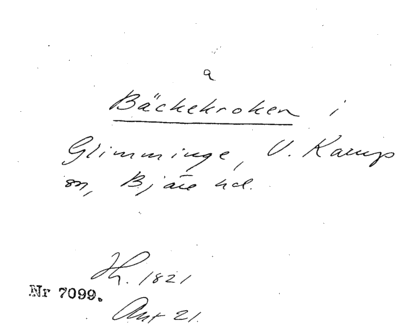 a
Bäckekroken i
Glimminge, V. Karup
sn, Bjäre hd.
Hh. 1821
Nr 7099.
Ant 21.